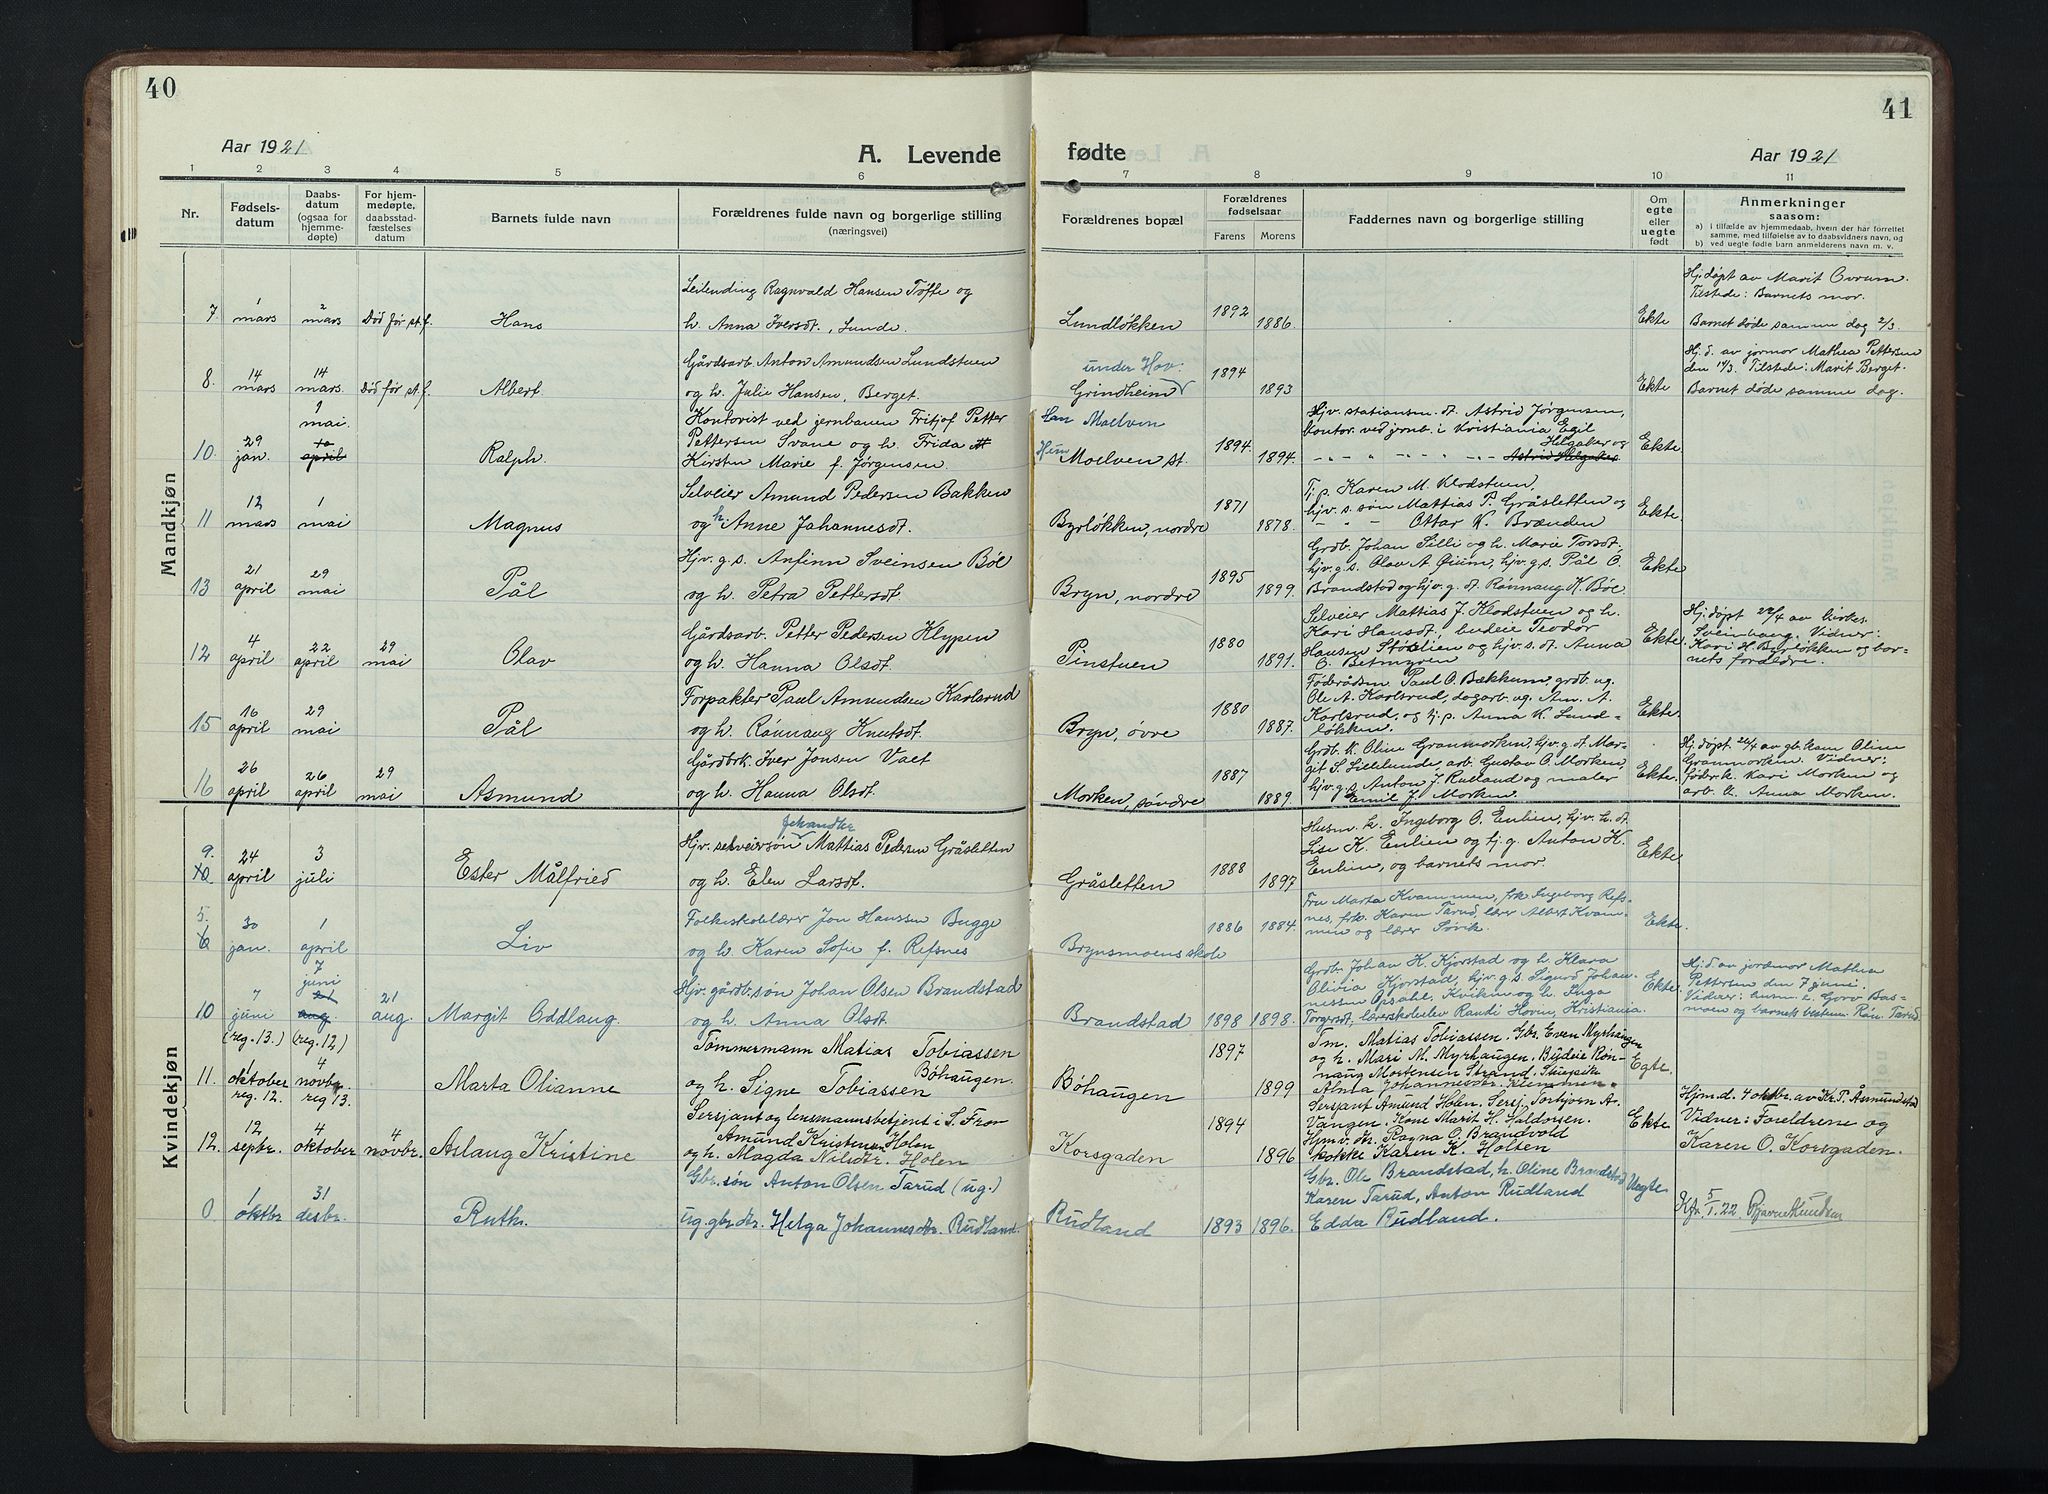 40
41
Aar 1921
A. Levende
fødte
Aar 1921
1 2 3 4 5 6 7 8 9 10 11
Nr.
Fødselsdatum
Daabsdatum (ogsaa for hjemmedøpte)
For hjemmedøpte, daabsstadfæstelses datum
Barnets fulde navn
Forældrenes fulde navn og borgerlige stilling (næringsvei)
Forældrenes bopæl
Forældrenes fødselsaar
Farens
Morens
Faddernes navn og borgerlige stilling
Om egte eller uegte født
Anmerkninger saasom:
a) i tilfælde av hjemmedaab, hvem der har forrettet samme, med tilføielse av to daabsvidners navn, og
b) ved uegte fødte barn anmelderens navn m. v.
Mandkjøn
Leilending Ragnvald Hansen Toffe og
Hj. døpt av Marit Ovrum.
Tilstede: Barnets mor.
7 1 mars 2 mars Død før st.f. Hans h. Anna Iversdt., Lunde. Lundløkken 1892 1886. Ekte Barnet døde samme dag 2/3.
Gårdsarb. Anton Amundsen Lundstuen
under Hov:
Hj. d. av jormor Mathea Pettersen
den 14/3. Tilstede: Marit Berget.
8. 14 mars 14 mars. Død før st.f. Albert og h. Julie Hansen, Berget. Grindheim 1894 1893 Ekte Barnet døde samme dag.
Kontorist ved jernbanen Fritjof Petter
Pettersen Svane og h. Frida
10. 29 jan. 9 mai. 10 april Ralph. Kirsten Marie f. Jørgensen.
Han Moelven
Hun Moelven st. 1894. 1894.
Hjv. stationsm. dt. Astrid Jørgensen,
kontor. ved jernb. i Kristiania Egil
Helgaker og
Astrid Helgaker
Ekte
Selveier Amund Pedersen Bakken
11 12 mars 1 mai Magnus og h. Anne Johannesdt. Byrløkken, nordre 1871 1878.
Tj. p. Karen M. Klodstuen,
hjv. s. søn Mattias P. Gråsletten og
Ottar K. Brænden
Ekte.
Hjv. g. s. Anfinn Sveinsen Böe
13 21 april 29 mai Pål og h. Petra Pettersdt. Bryn, nordre 1895 1899.
Grdb. Johan Silli og h. Marie Torsdt.,
hjv. g. s. Olav A. Øium, hjv. g. s. Pål O.
Brandstad og hjv. g. dt. Rønnaug K. Böe.
Ekte.
Gårdsarb. Petter Pedersen Klypen
12 4 april 22 april 29 mai Olav og h. Hanna Olsdt. Pinstuen 1880 1891.
Selveier Mattias J. Klodstuen og h.
Kari Hansdt., budeie Teodor
Hansen Stølien og hjv. s. dt. Anna
O. Betmyren
Ekte.
Hj. døpt 22/4 av kirkes.
Sveinhaug. Vidner:
Kari H. Byrløkken og barnets
foreldre.
Forpakter Paul Amundsen Karlsrud
15 16 april 29 mai Pål og h. Rønnaug Knutsdt. Bryn, övre 1880 1887.
Føderådsm. Paul O. Bækkum, grdb. ug.
Ole A. Karlsrud, dagarb. ug. Am. A.
Karlsrud, og tj. p. Anna K. Lundløkken.
Ekte.
Gårdbrk. Iver Jonsen Valt
16 26 april 26 april 29 mai Asmund og h. Hanna Olsdt. Morken, søndre 1887 1889.
Grdb. K. Oline Granmorken, hjv. g. dt. Margit
S. Lillelunde, arb. Gustav O. Morken,
hjv. g. s. Anton J. Rulland og maler
Emil J. Morken.
Ekte.
Hj. døpt 26/4 av gb. kone Oline
Granmorken. Vidner:
føderk. Kari Morken og
arb. k. Anna Morken.
Kvindekjøn
fehandler
Hjv. selveiersøn Mattias Pedersen Gråsletten
9. 10 24 april 3 juli Ester Målfried og h. Elen Larsdt. Gråsletten 1888 1897
Husm. k. Ingeborg O. Enlien, hjv. h. dt.
Lise K. Enlien og tj. g. Anton K.
Enlien, og barnets mor.
Ekte
Folkeskolelærer Jon Hanssen Bugge
5. 6 30 jan. 1 april Liv og h. Karen Sofie f. Refsnes Brynsmoens skole 1886 1884.
Fru Marta Kvammen, frk. Ingeborg Refsnes,
frk. Karen Tarud, lærer Albert Kvammen
og lærer Søvik.
Ekte.
Hjv. gårdb. søn Johan Olsen Brandstad
10 7 juni 7 juni 21 aug. 21 aug. Margit Oddlaug. og h. Anna Olsdt. Brandstad 1898 1898.
Grdb. Johan H. Kjorstad og h. Klara
Olivia Kjorstad, hjv. g. s. Sigurd Johannessen
Opsahl, Kvikne og h. Inga
Torgersdt., lærerskoleelev Randi Hovin, Kristiania.
Ekte.
Hj. d. av jordmor Mathea
Pettersen den 7 juni.
Vidner: husm. k. Goro Basmoen
og barnets bestem. Rön. Tarud.
(reg. 13.) (reg. 12)
Tømmermann Matias Tobiassen
Böhaugen.
11. 1 oktober 4 novbr. Marta Olianne og h. Signe Tobiassen Böhaugen 1897 1899
reg. 12. reg 13.
Tm. Matias Tobiassen. Gbr. Even Myrhaugen
og h. Mari M. Myrhaugen. Budeie Rønnaug
Mortensen Strand.
Alma Johannesdtr.
Egte.
Sersjant og lensmannsbetjent i S. Fron
Amund Kristensen Holen
12. 12 septbr. 4 oktober 4 novbr. Aslaug Kristine og h. Magda Nilsdtr. Holen Korsgaden 1894 1896
Sersjant Amund Holen. Sersj. Torbjørn A.
Vangen. Kone Marit H. Haldorsen.
Hjmv. dr. Ragna O. Brandvold
kokke Karen K. Holten
Ekte
Hjm. d. 4 oktbr. av Kr. T. Åsmundstad
Vidner: Foreldrene og
Karen O. Korsgaden.
Gbr. søn Anton Olsen Tarud (ug.)
0 1 oktbr 31 desbr. Ruth. ug. gbr. dtr. Helga Johannesdtr. Rudland. Rudland 1893 1896.
Gbr. Ole Brandstad, h. Oline Brandstad
Karen Tarud, Anton Rudland
Edda Rudland.
Uegte
Kfr. 5/1. 22. Bjarne Knudsen